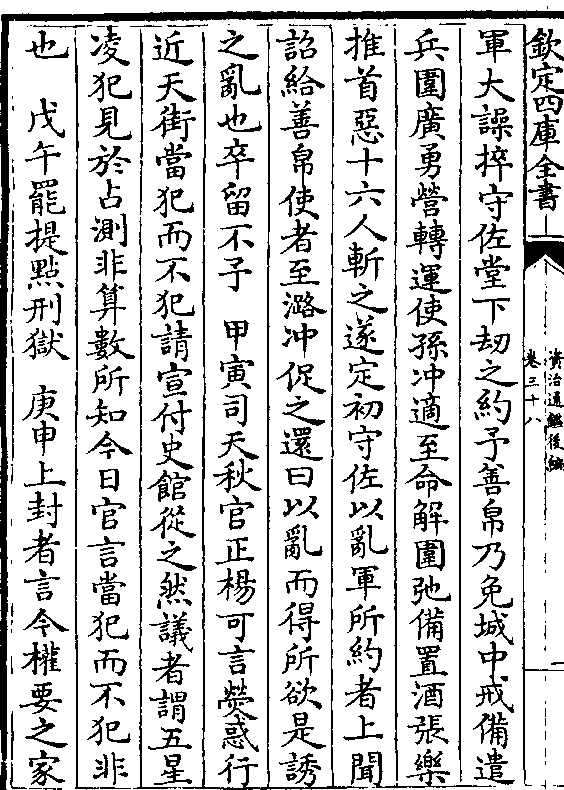 欽定四庫全書
資治通鑑後編
卷三十八
一
軍大譟捽守佐堂下劫之約予善帛乃免城中戒備遣
兵圍廣勇營轉運使孫冲適至命解圍弛備置酒張樂
推首惡十六人斬之遂定初守佐以亂軍所約者上聞
詔給善帛使者至潞冲促之還曰以亂而得所欲是誘
之亂也卒留不予　甲寅司天秋官正楊可言熒惑行
近天街當犯而不犯請宣付史館從之然議者謂五星
凌犯見於占測非算數所知今日官言當犯而不犯非
也　戊午罷提點刑獄　庚申上封者言今權要之家